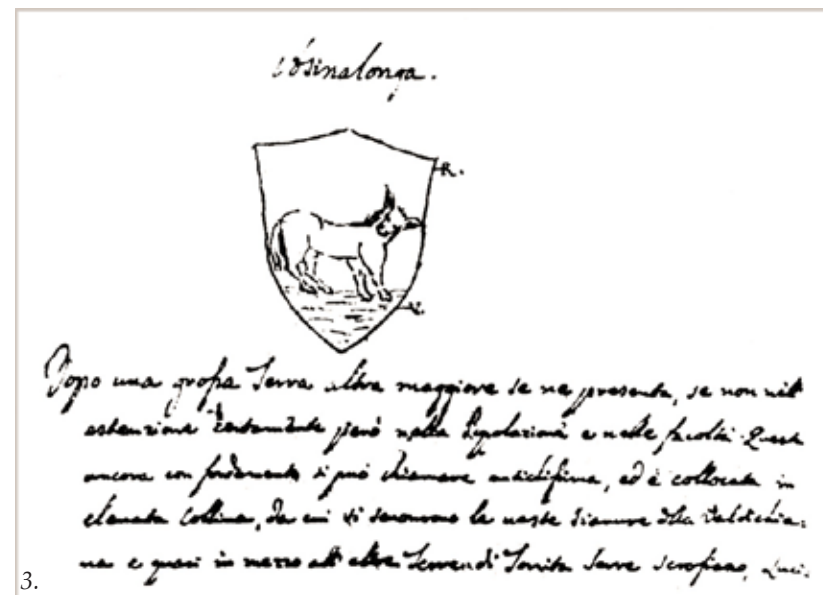 Asinalonga.
R.
V.
Dopo una grossa Terra altra maggiore se ne presenta, se non nell'
estenzione certamente però nella Popolazione e nelle facoltà. Questa
ancora con fondamento si può chiamare antichissima, ed è collocata in
elevata Collina, da cui si scuoprono le vaste Pianure della Valdichia:
na e quasi in mezzo all'altre Terre di Torrita Serre Scrofiano, Luci:
3.